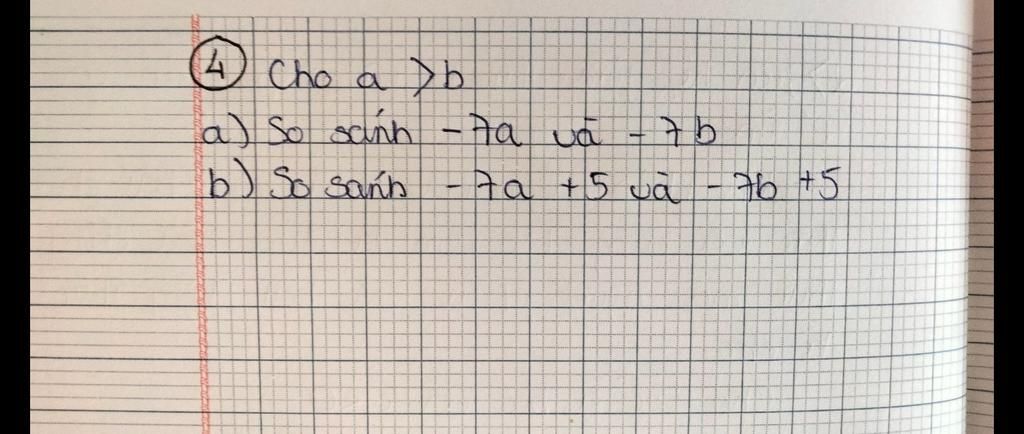 4 Cho a > b
a) So sánh -7a và -7b
b) So sánh -7a +5 và -7b +5